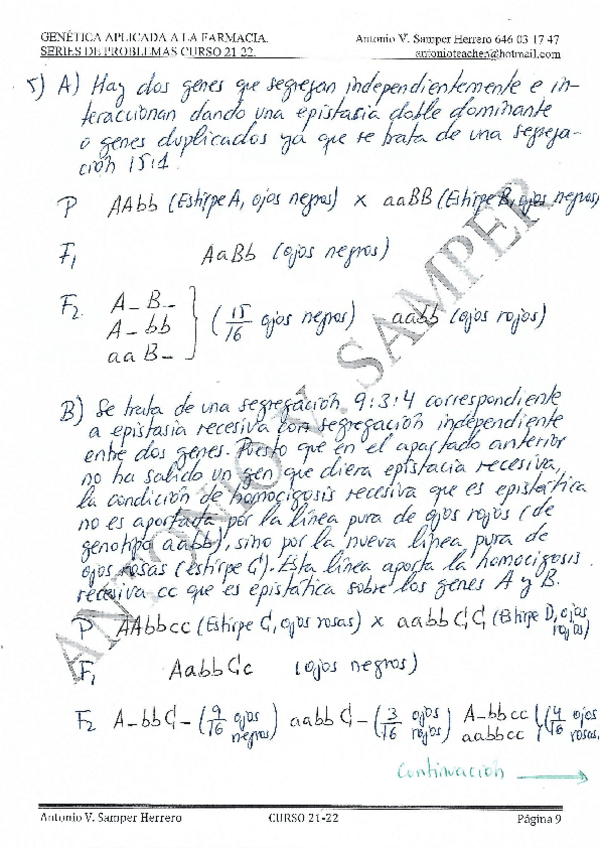 GENÉTICA APLICADA A LA FARMACIA. Antonio V. Samper Herrero 646 03 17 47
SERIES DE PROBLEMAS CURSO 21-22. antonioteacher@hotmail.com
5) A) Hay dos genes que segregan independientemente e in-
teraccionan dando una epistasia doble dominante
o genes duplicados ya que se trata de una segrega-
ción 15:1.
P AAbb (Estirpe A, ojos negros) x aaBB (Estirpe B, ojos negros)
F1 AaBb (ojos negros)
F2 A_B_
A_bb
aaB_
} (15/16 ojos negros) aabb (ojos rojos)
B) Se trata de una segregación 9:3:4 correspondiente
a epistasia recesiva con segregación independiente
entre dos genes. Puesto que en el apartado anterior
no ha salido un gen que diera epistacia recesiva,
la condición de homocigosis recesiva que es epistática
no es aportada por la línea pura de ojos rojos (de
genotipo aabb), sino por la nueva línea pura de
ojos rosas (estirpe C). Esta línea aporta la homocigosis
recesiva cc que es epistática sobre los genes A y B.
P AAbbcc (Estirpe C, ojos rosas) x aabbCC (Estirpe D, ojos rojos)
F1 AabbCc (ojos negros)
F2 A_bbC_ (9/16 ojos negros) aabbC_ (3/16 ojos rojos) A_bbcc aabbcc } (4/16 ojos rosas
continuación →
Antonio V. Samper Herrero CURSO 21-22 Página 9
ANTONIO V. SAMPER